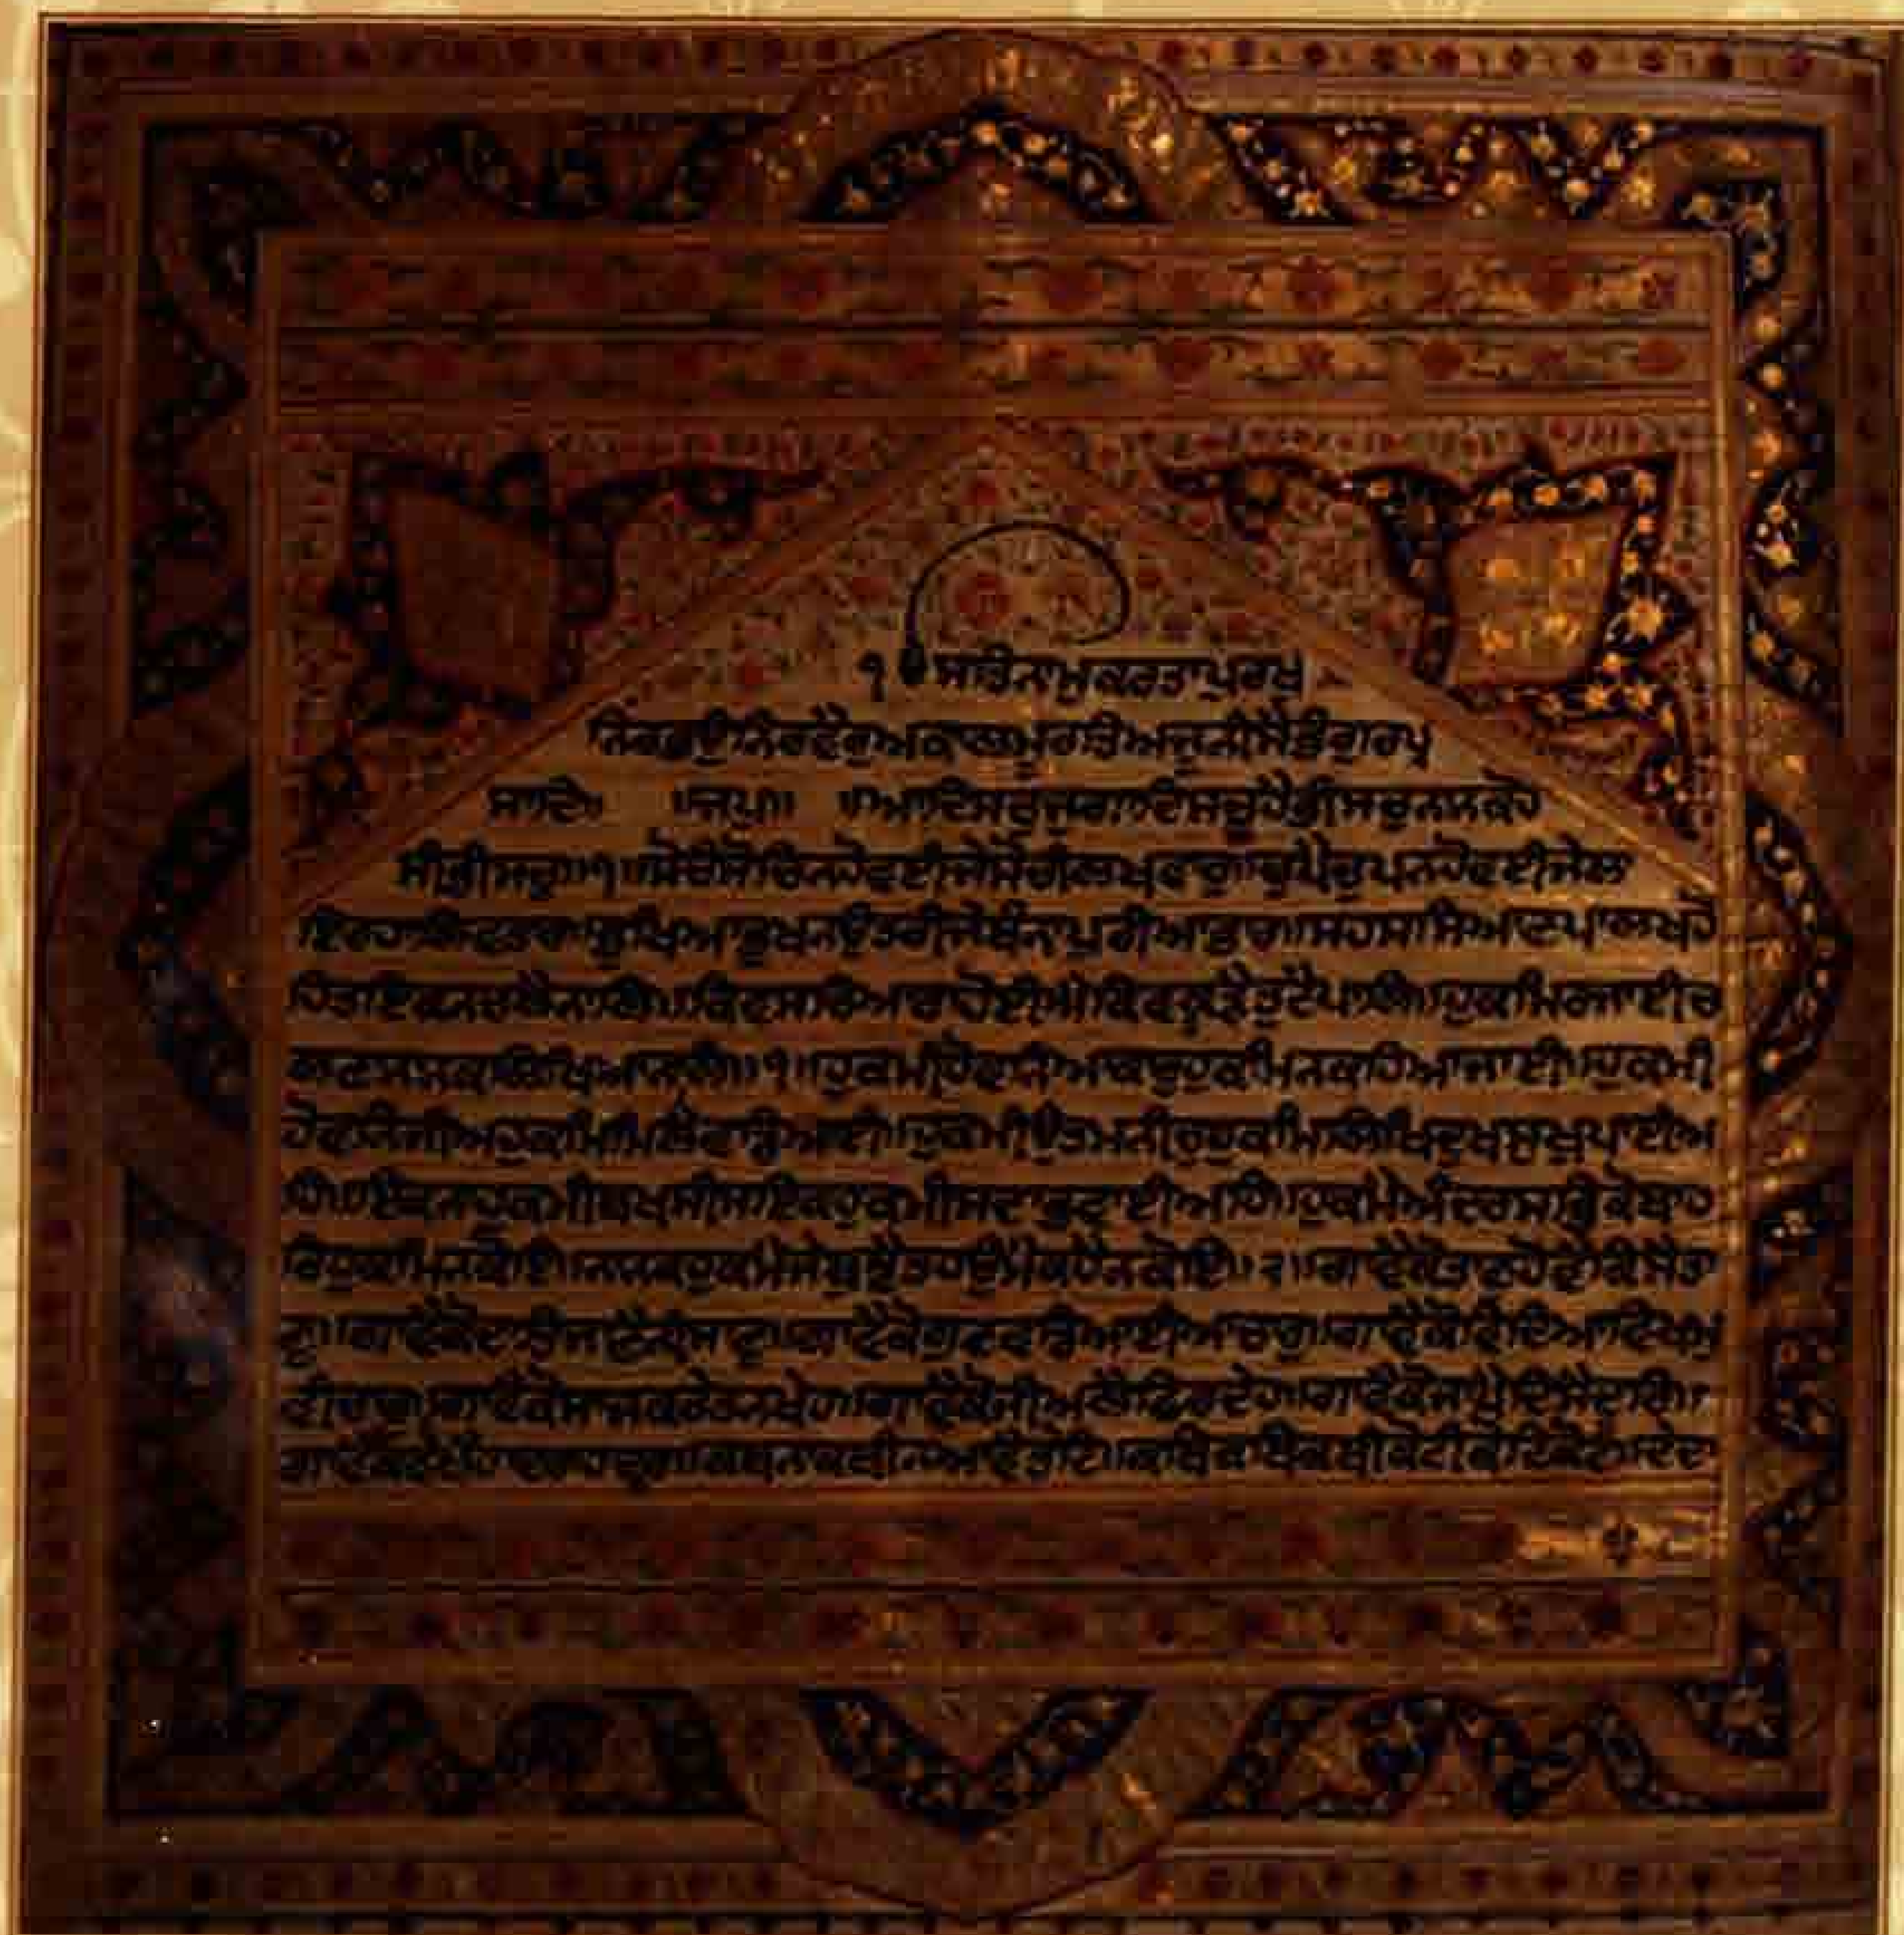 ੴ ਸਤਿਨਾਮੁਕਰਤਾਪੁਰਖੁ
ਨਿਰਭਉਨਿਰਵੈਰੁਅਕਾਲਮੂਰਤਿਅਜੂਨੀਸੈਭੰਗੁਰਪ੍ਰ
ਸਾਦਿ॥ ॥ਜਪੁ॥ ॥ਆਦਿਸਚੁਜੁਗਾਦਿਸਚੁਹੈਭੀਸਚੁਨਾਨਕਹੋ
ਸੀਭੀਸਚੁ॥੧॥ਸੋਚੈਸੋਚਿਨਹੋਵਈਜੇਸੋਚੀਲਖਵਾਰ॥ਚੁਪੈਚੁਪਨਹੋਵਈਜੇਲਾ
ਇਰਹਾਲਿਵਤਾਰ॥ਭੁਖਿਆਭੁਖਨਉਤਰੀਜੇਬੰਨਾਪੁਰੀਆਭਾਰ॥ਸਹਸਸਿਆਣਪਾਲਖਹੋ
ਹਿਤਇਕਨਚਲੈਨਾਲਿ॥ਕਿਵਸਚਿਆਰਾਹੋਈਐਕਿਵਕੂੜੈਤੁਟੈਪਾਲਿ॥ਹੁਕਮਿਰਜਾਈਚ
ਲਣਾਨਾਨਕਲਿਖਿਆਨਾਲਿ॥੧॥ਹੁਕਮੀਹੋਵਨਿਆਕਾਰਹੁਕਮੁਨਕਹਿਆਜਾਈ॥ਹੁਕਮੀ
ਹੋਵਨਿਜੀਅਹੁਕਮਿਮਿਲੈਵਡਿਆਈ॥ਹੁਕਮੀਉਤਮੁਨੀਚੁਹੁਕਮਿਲਿਖਿਦੁਖਸੁਖਪਾਈਅ
ਹਿ॥ਇਕਨਾਹੁਕਮੀਬਖਸੀਸਇਕਿਹੁਕਮੀਸਦਾਭਵਾਈਅਹਿ॥ਹੁਕਮੈਅੰਦਰਿਸਭੁਕੋਬਾਹ
ਰਿਹੁਕਮਨਕੋਇ॥ਨਾਨਕਹੁਕਮੈਜੇਬੁਝੈਤਹਉਮੈਕਹੈਨਕੋਇ॥੨॥ਗਾਵੈਕੋਤਾਣੁਹੋਵੈਕਿਸੈਤਾ
ਣੁ॥ਗਾਵੈਕੋਦਾਤਿਜਾਣੈਨੀਸਾਣੁ॥ਗਾਵੈਕੋਗੁਣਵਡਿਆਈਆਚਾਰ॥ਗਾਵੈਕੋਵਿਦਿਆਵਿਖਮੁ
ਵੀਚਾਰੁ॥ਗਾਵੈਕੋਸਾਜਿਕਰੇਤਨੁਖੇਹ॥ਗਾਵੈਕੋਜੀਅਲੈਫਿਰਿਦੇਹ॥ਗਾਵੈਕੋਜਾਪੈਦਿਸੈਦੂਰਿ॥
ਗਾਵੈਕੋਵੇਖੈਹਾਦਰਾਹਦੂਰਿ॥ਕਥਨਾਕਥੀਨਆਵੈਤੋਟਿ॥ਕਥਿਕਥਿਕਥੀਕੋਟੀਕੋਟਿਕੋਟਿ॥ਦੇਦਾ